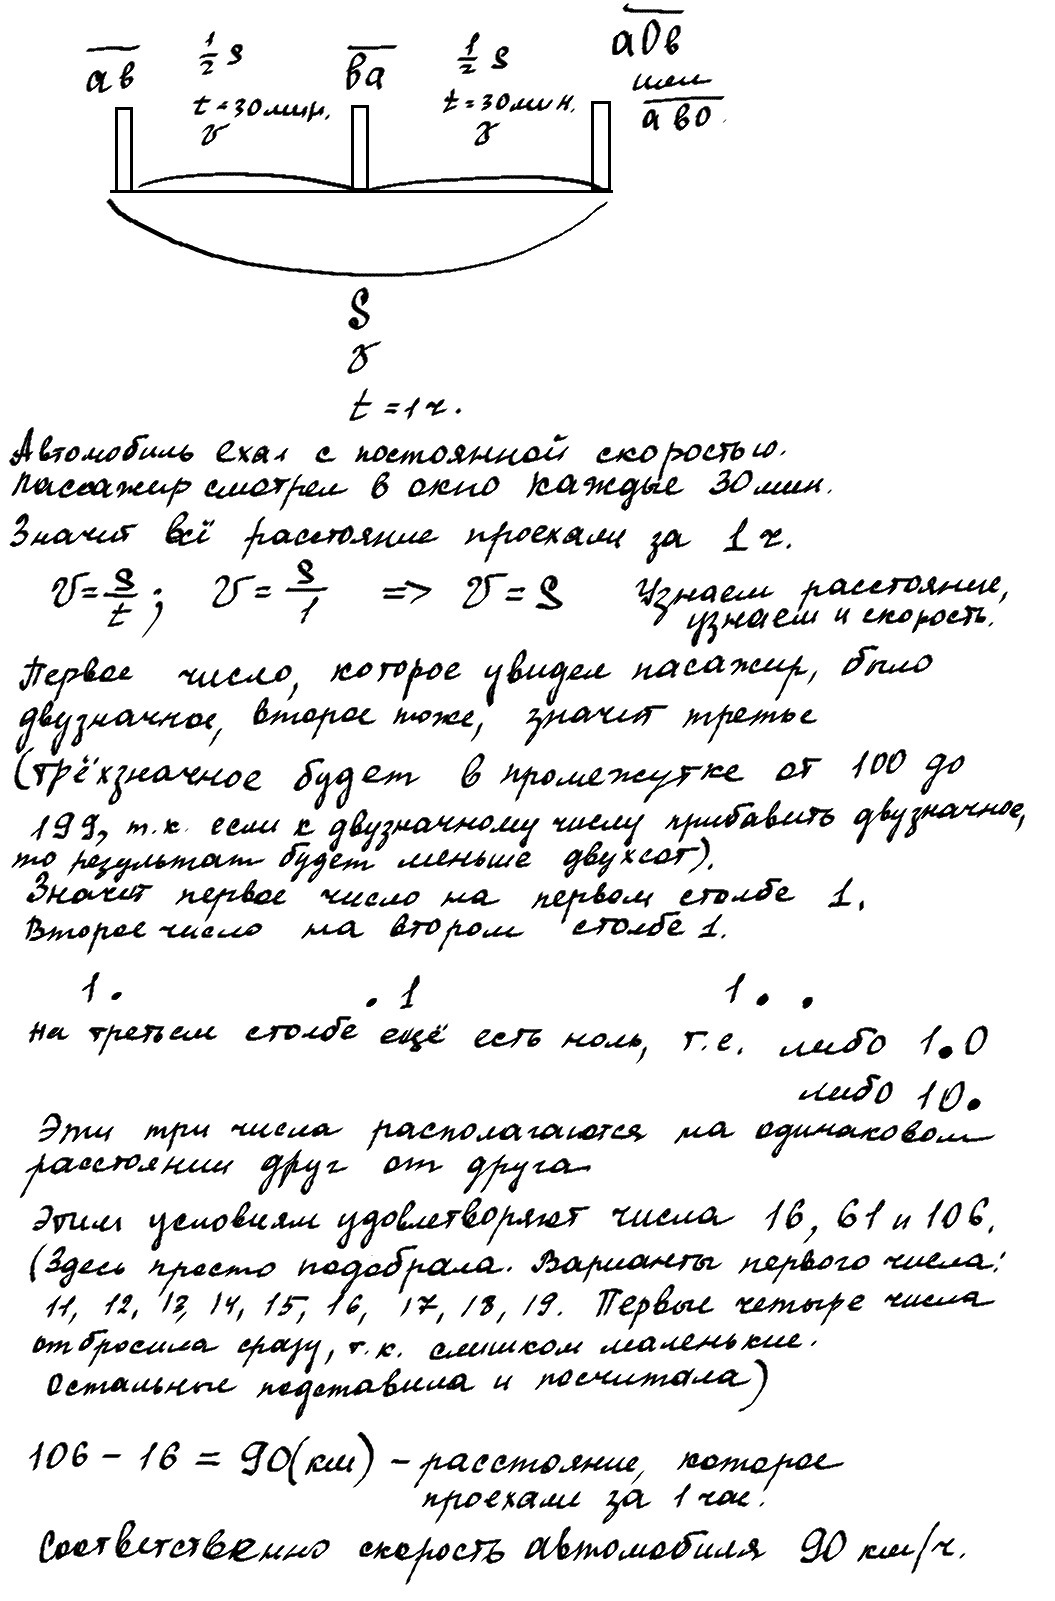 ав ½ S ва ½ S а0в
t = 30 мин. t = 30 мин. или
v v ав0.
S
v
t = 1 ч.
Автомобиль ехал с постоянной скоростью.
Пассажир смотрел в окно каждые 30 мин.
Значит всё расстояние проехали за 1 ч.
v = S/t ; v = S/1 => v = S Узнаем расстояние,
узнаем и скорость.
Первое число, которое увидел пасажир, было
двузначное, второе тоже, значит третье
(трёхзначное будет в промежутке от 100 до
199, т.к. если к двузначному числу прибавить двузначное,
то результат будет меньше двухсот).
Значит первое число на первом столбе 1.
Второе число на втором столбе 1.
1. .1 1..
На третьем столбе ещё есть ноль, т.е. либо 1.0
либо 10.
Эти три числа располагаются на одинаковом
расстоянии друг от друга
Этим условиям удовлетворяют числа 16, 61 и 106.
(Здесь просто подобрала. Варианты первого числа:
11, 12, 13, 14, 15, 16, 17, 18, 19. Первые четыре числа
отбросила сразу, т.к. слишком маленькие.
Остальные подставила и посчитала)
106 - 16 = 90(км) - расстояние, которое
проехали за 1 час.
Соответственно скорость автомобиля 90 км/ч.